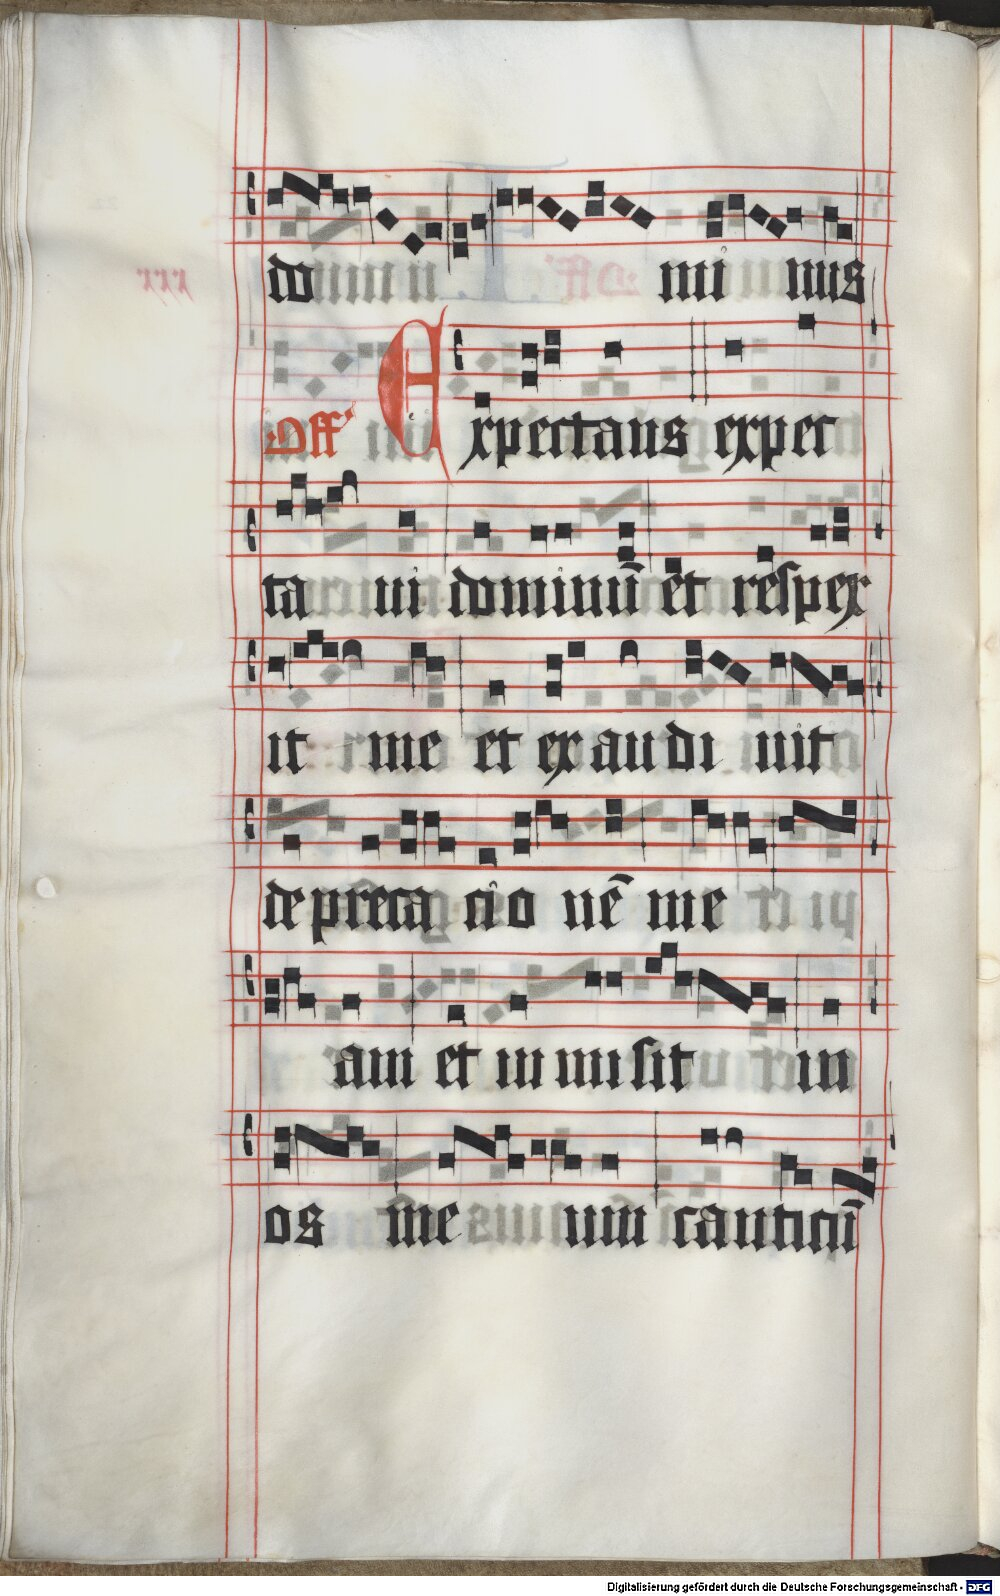 do mi nus
Off Expectans expec
ta ui dominū et respex
it me et exaudi uit
depreca cio nē me
am et in misit in
os me um canticū
Digitalisierung gefördert durch die Deutsche Forschungsgemeinschaft - DFG